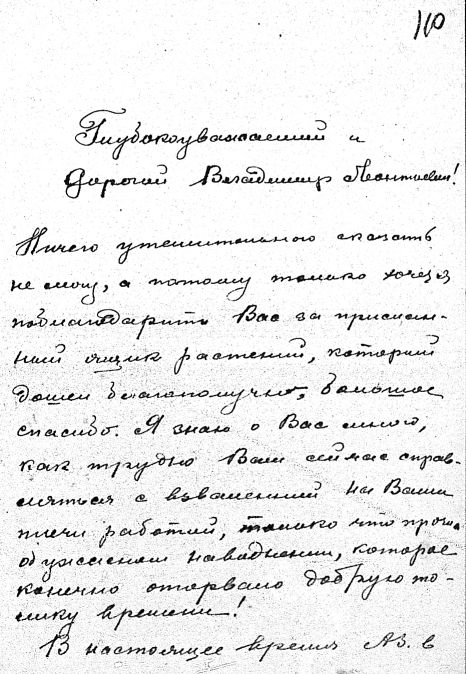 110
Глубокоуважаемый и
Дорогой Владимир Леонтьевич!
Ничего утешительного сказать
не могу, а потому только хочется
поблагодарить Вас за прислан-
ный ящик растений, который
дошел благополучно, большое
спасибо. Я знаю о Вас много,
как трудно Вам сейчас справ-
ляться с взваленной на Ваши
плечи работой, только что прошл
об ужасном наводнении, которое
конечно оторвало добрую то-
лику времени!
В настоящее время Аз. в